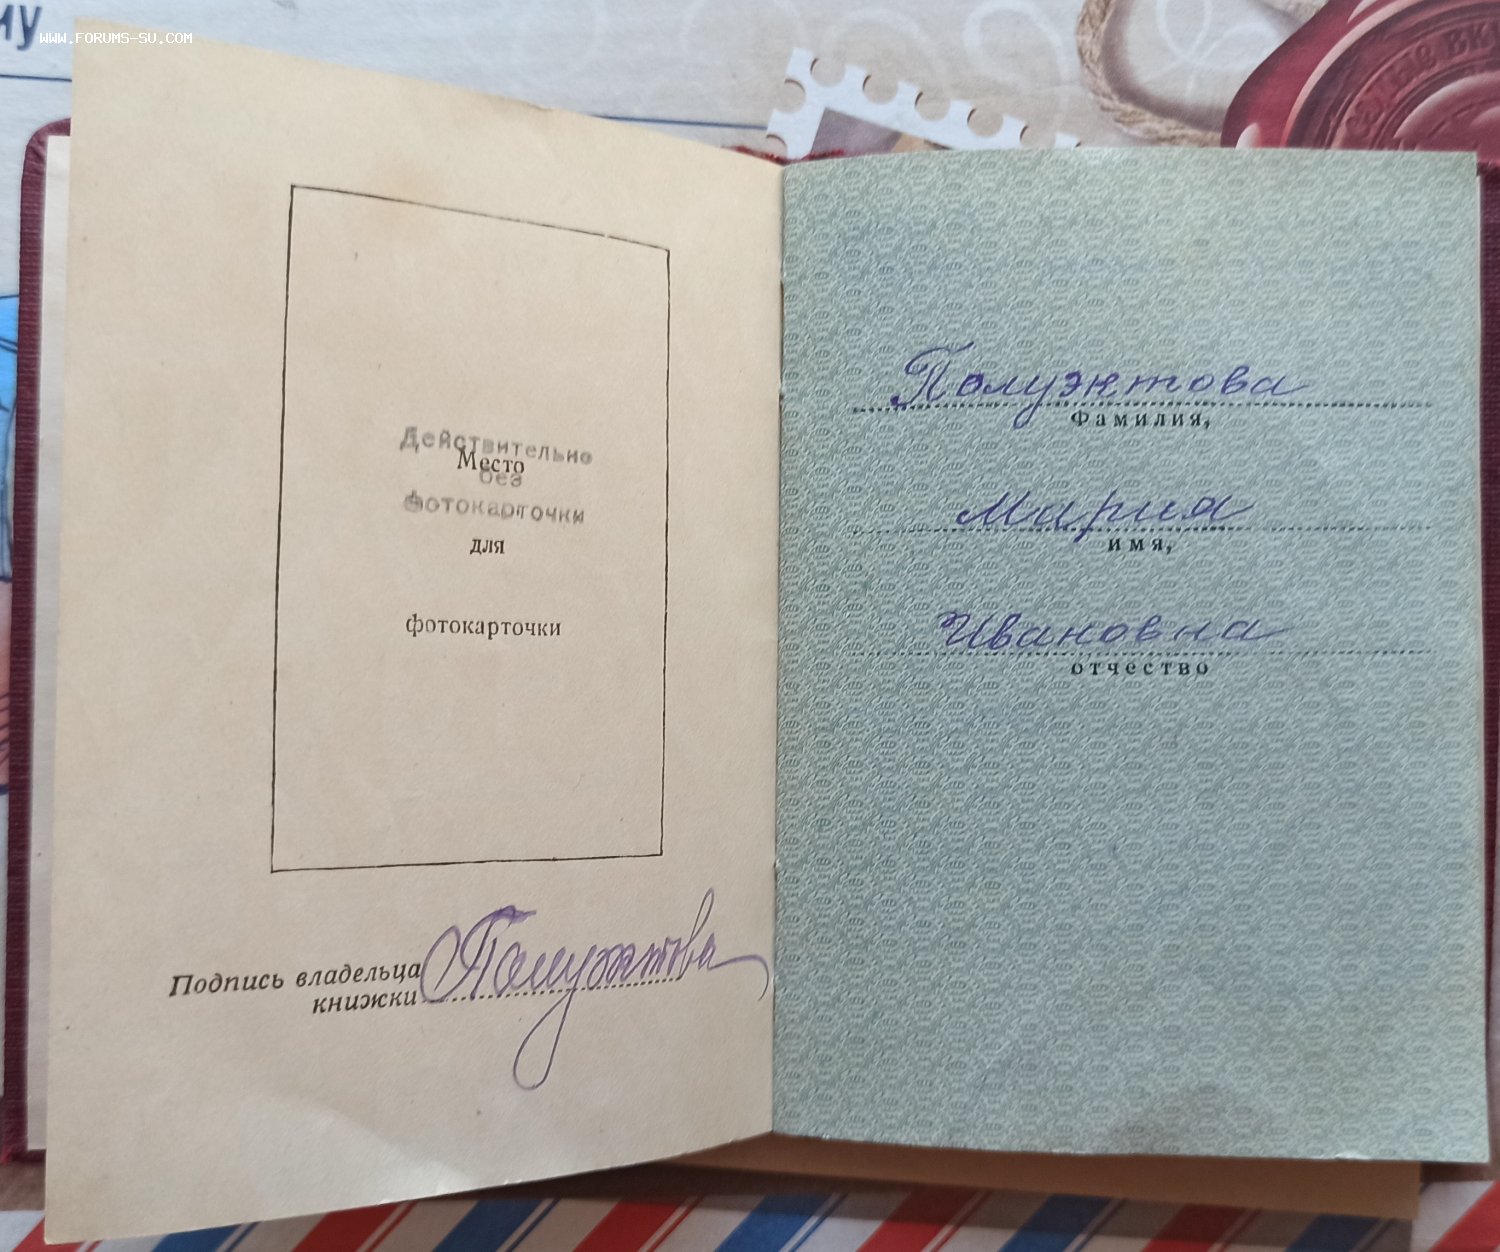 му
WWW.FORUMS-SU.COM
Действительно
Место
без
фотокарточки
для
фотокарточки
Подпись владельца
книжки
Полуэктова
Полуэктова
Фамилия,
Мария
имя,
Ивановна
отчество